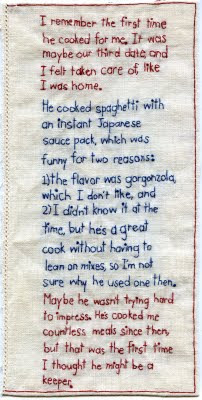 I remember the first time
he cooked for me. It was
maybe our third date, and
I felt taken care of, like
I was home.
He cooked spaghetti with
an instant Japanese
sauce pack, which was
funny for two reasons:
1) the flavor was gorgonzola,
which I don't like, and
2) I didn't know it at the
time, but he's a great
cook without having to
lean on mixes, so I'm not
sure why he used one then.
Maybe he wasn't trying hard
to impress. He's cooked me
countless meals since then,
but that was the first time
I thought he might be a
keeper.